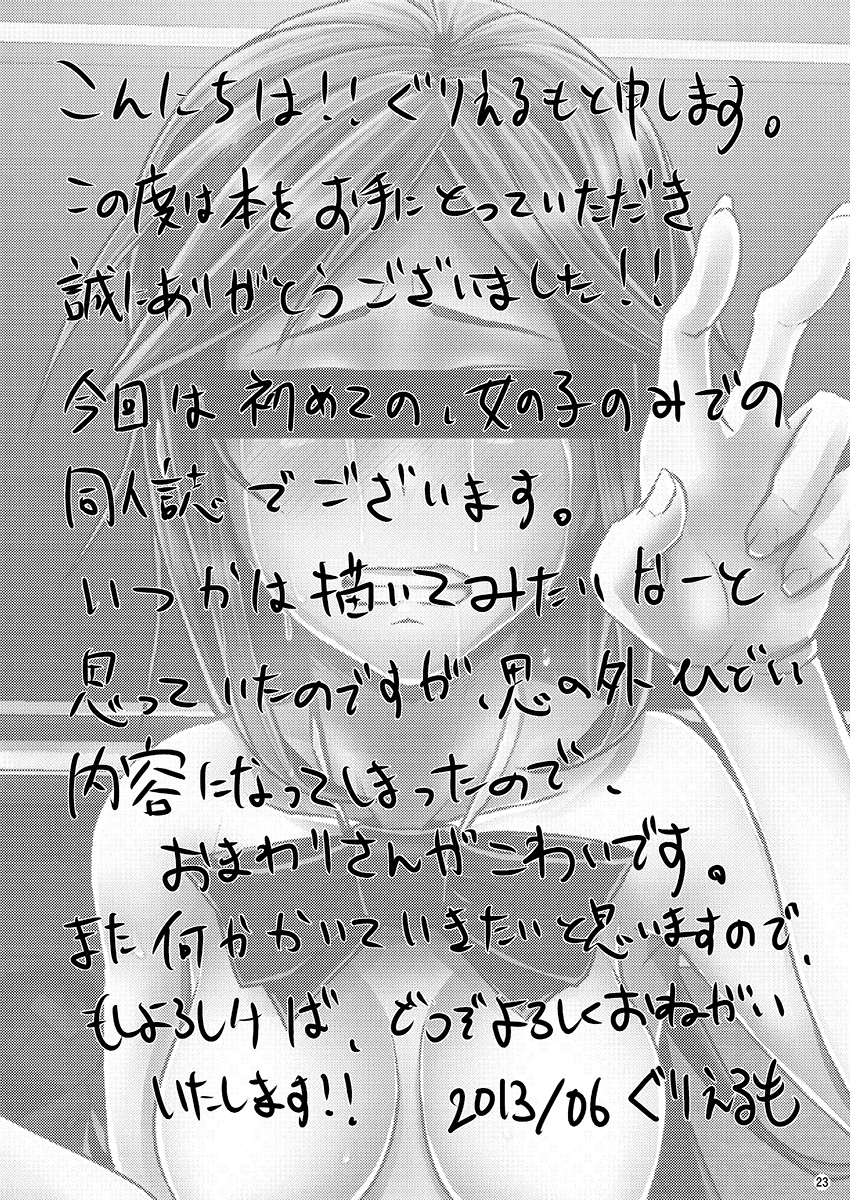 こんにちは!! ぐりえるもと申します。
この度は本をお手にとっていただき
誠にありがとうございました!!
今回は初めての、女の子のみでの
同人誌でございます。
いつかは描いてみたいなーと
思っていたのですが、思の外ひどい
内容になってしまったので、
おまわりさんがこわいです。
また何かかいていきたいと思いますので、
もしよろしければ、どうぞよろしくおねがい
いたします!! 2013/06 ぐりえるも
23